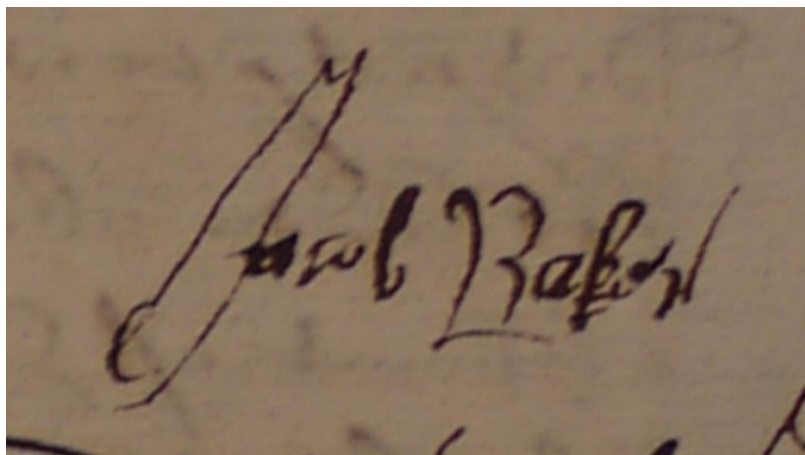 Jacob Baker